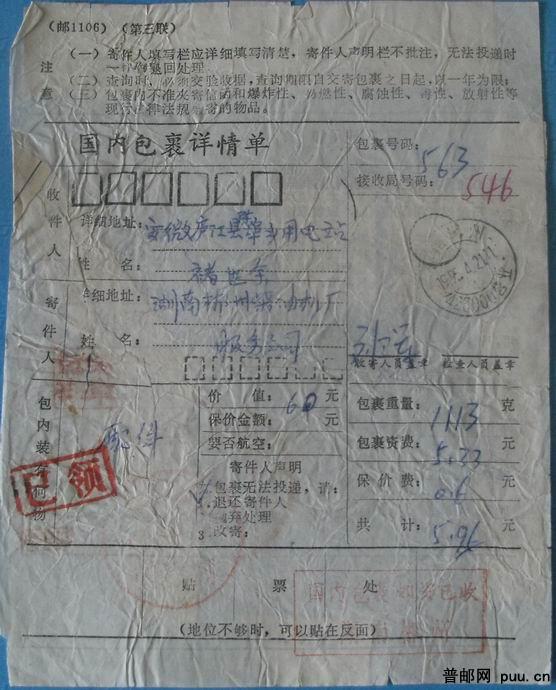 (邮1106) (第三联)
注意
(一) 寄件人填写栏应详细填写清楚，寄件人声明栏不批注，无法投递时
一律做退回处理。
(二) 查询时，必须交验收据，查询期限自交寄包裹之日起，以一年为限；
(三) 包裹内不准夹寄信函和爆炸性、易燃性、腐蚀性、毒性、放射性等
现行法律法规禁寄的物品。
国内包裹详情单
包裹号码：563
接收局号码：546
收件人
详细地址：安徽庐江县
姓名：
寄件人
详细地址：湖南郴州
姓名：服务公司
收寄人员盖章
检查人员盖章
包内装有何物
配件
已领
价值：60元
保价金额：元
要否航空：
寄件人声明
包裹无法投递，请：
退还寄件人
抛弃处理
3.改寄：
包裹重量：1113克
包裹资费：元
保价费：0.6元
共计：5.96元
贴票处
国内包裹 已收
(地位不够时，可以贴在反面)
普邮网 puu.cn